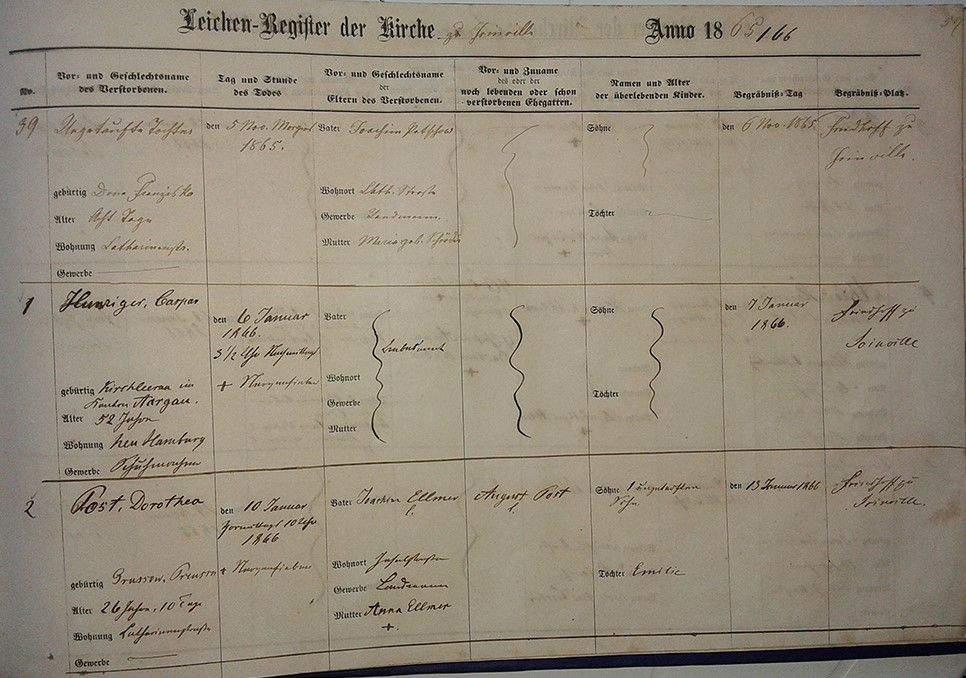 Leichen-Register der Kirche zu Joinville Anno 1865/66
No.
Vor- und Geschlechtsname
des Verstorbenen.
Tag und Stunde
des Todes
Vor- und Geschlechtsname
der
Eltern des Verstorbenen.
Vor- und Zuname
des oder der
noch lebenden oder schon
verstorbenen Ehegatten.
Namen und Alter
der überlebenden Kinder.
Begräbniß-Tag
Begräbniß-Platz.
39
Ungetaufte Tochter
gebürtig Dona Franziska
Alter Acht Tage
Wohnung Catharinenstr.
Gewerbe
den 5 Nov. Morgens
1865.
Vater Joachim
Wohnort Cath. Strasse
Gewerbe Landmann.
Mutter Maria geb. Schröder
Söhne
Töchter
den 6 Nov. 1865.
Friedhoff zu
Joinville.
1
Hunziger, Caspar
gebürtig Kirchleerau im
Kanton Aargau.
Alter 52 Jahre
Wohnung Neu Hamburg
Gewerbe Schuhmacher
den 6 Januar
1866.
3 1/2 Uhr Nachmittags
+
Vater
Unbekannt
Wohnort
Gewerbe
Mutter
Söhne
Töchter
den 7 Januar
1866.
Friedhoff zu
Joinville
2
Post, Dorothea
gebürtig Preussen
Alter 26 Jahre, 10 Tage
Wohnung Catharinenstraße
Gewerbe
den 10 Januar
Vormittags 10 Uhr
1866
+
Vater Joachim Ellmer
Wohnort Inselstrasse
Gewerbe Landmann
Mutter Anna Ellmer
+.
August Post
Söhne 1 ungetauften
Sohn
Töchter Emilie
den 13 Januar 1866
Friedhoff zu
Joinville.